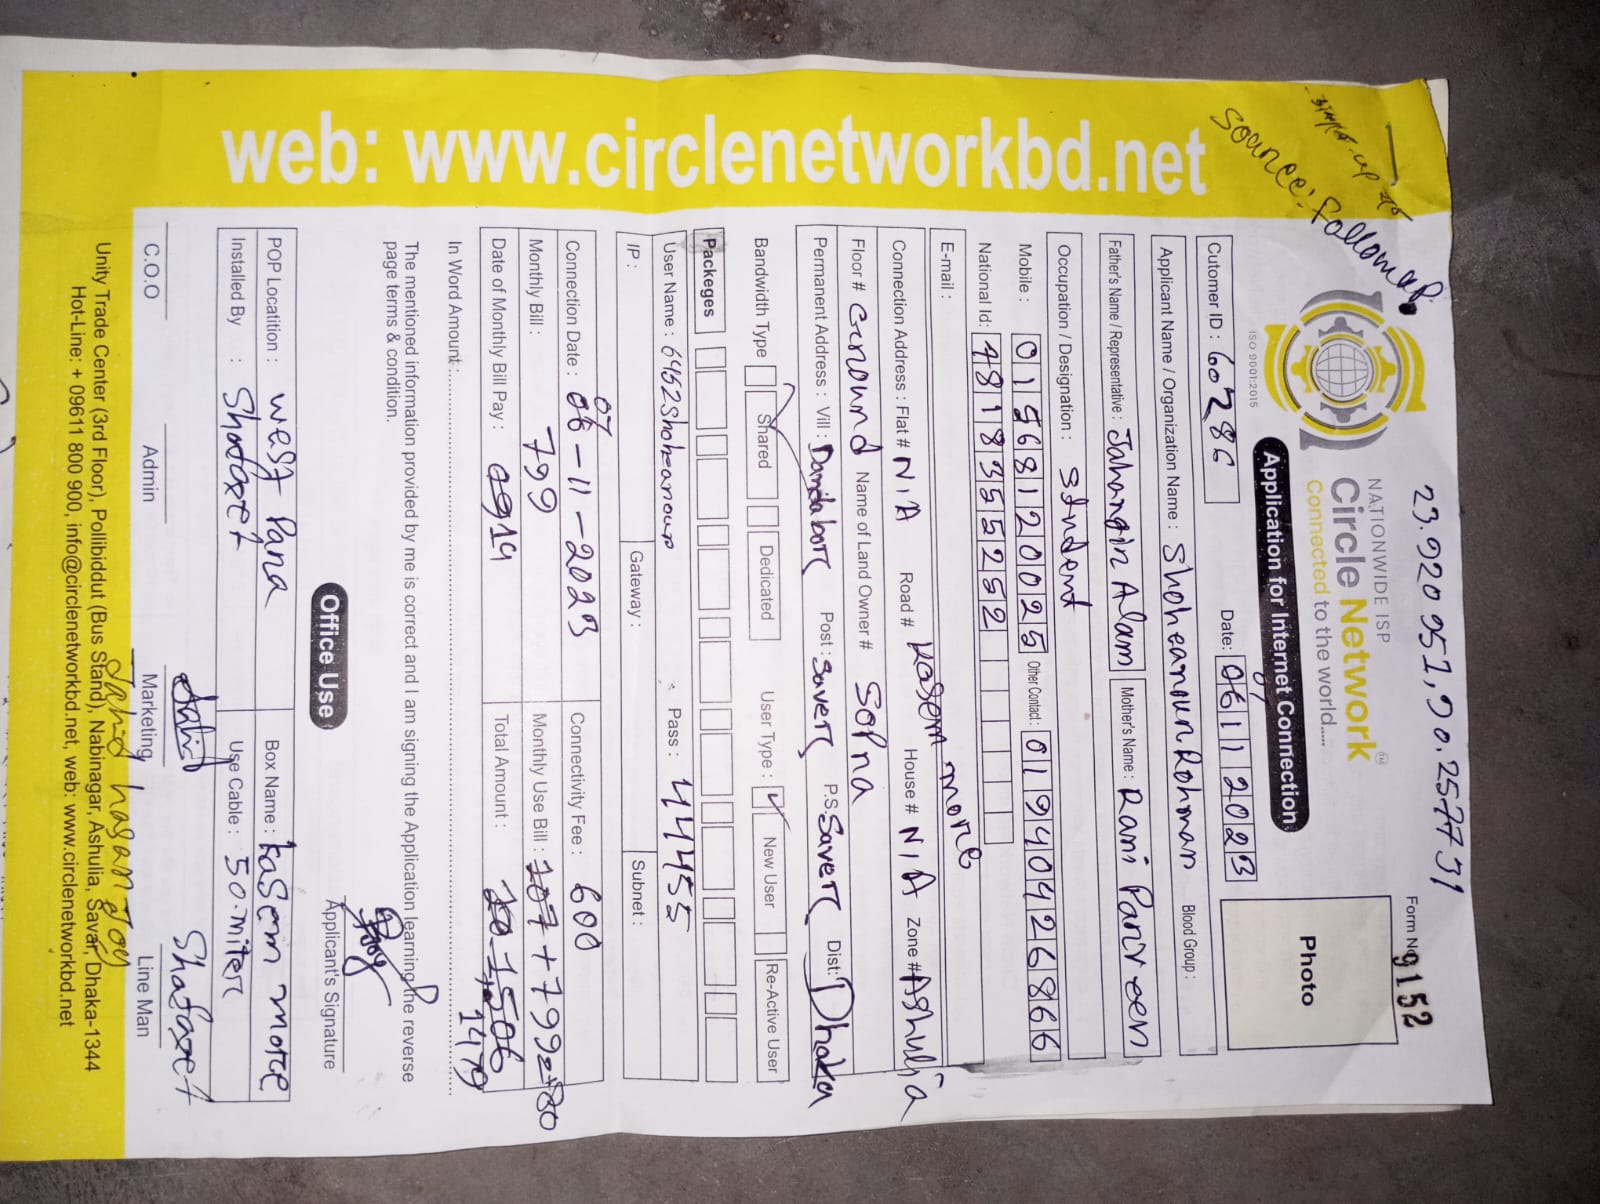 23.920951,90.257731
Form No 9152
Source: followup
NATIONWIDE ISP
Circle Network
Connected to the world.....
ISO 9001:2015
Application for Internet Connection
Photo
Cutomer ID : 60286 Date: 06112023
07
Applicant Name / Organization Name : Shoheanour Rohman Blood Group :
Father's Name / Representative : Jahangir Alam Mother's Name : Rani Parveen
Occupation / Designation : Student
Mobile : 01568120025 Other Contact : 01940426866
National Id: 4818355252
E-mail :
Connection Address : Flat # N/A Road # Kasem more House # N/A Zone # Ashulia
Floor # Ground Name of Land Owner # Sopna
Permanent Address : Vill : Dandabor Post : Saver P.S. Saver Dist: Dhaka
Bandwidth Type Shared Dedicated User Type : New User Re-Active User
Packeges
User Name : 6452Shoheanour Pass : 44455
IP : Gateway : Subnet :
07
Connection Date : 06-11-2023 Connectivity Fee : 600
Monthly Bill : 799 Monthly Use Bill : +799+80
Date of Monthly Bill Pay : 14 Total Amount : 1506
1479
In Word Amount :
The mentioned information provided by me is correct and I am signing the Application learning the reverse
page terms & condition.
Applicant's Signature
Office Use
POP Locatition : West Para Box Name : kasem more
Installed By : Shafaet Use Cable : 50.miter
Jahid Shafaet
C.O.O Admin Marketing Line Man
Jahid hasan Joy
Unity Trade Center (3rd Floor), Pollibiddut (Bus Stand), Nabinagar, Ashulia, Savar, Dhaka-1344
Hot-Line: + 09611 800 900, info@circlenetworkbd.net, web: www.circlenetworkbd.net
web: www.circlenetworkbd.net